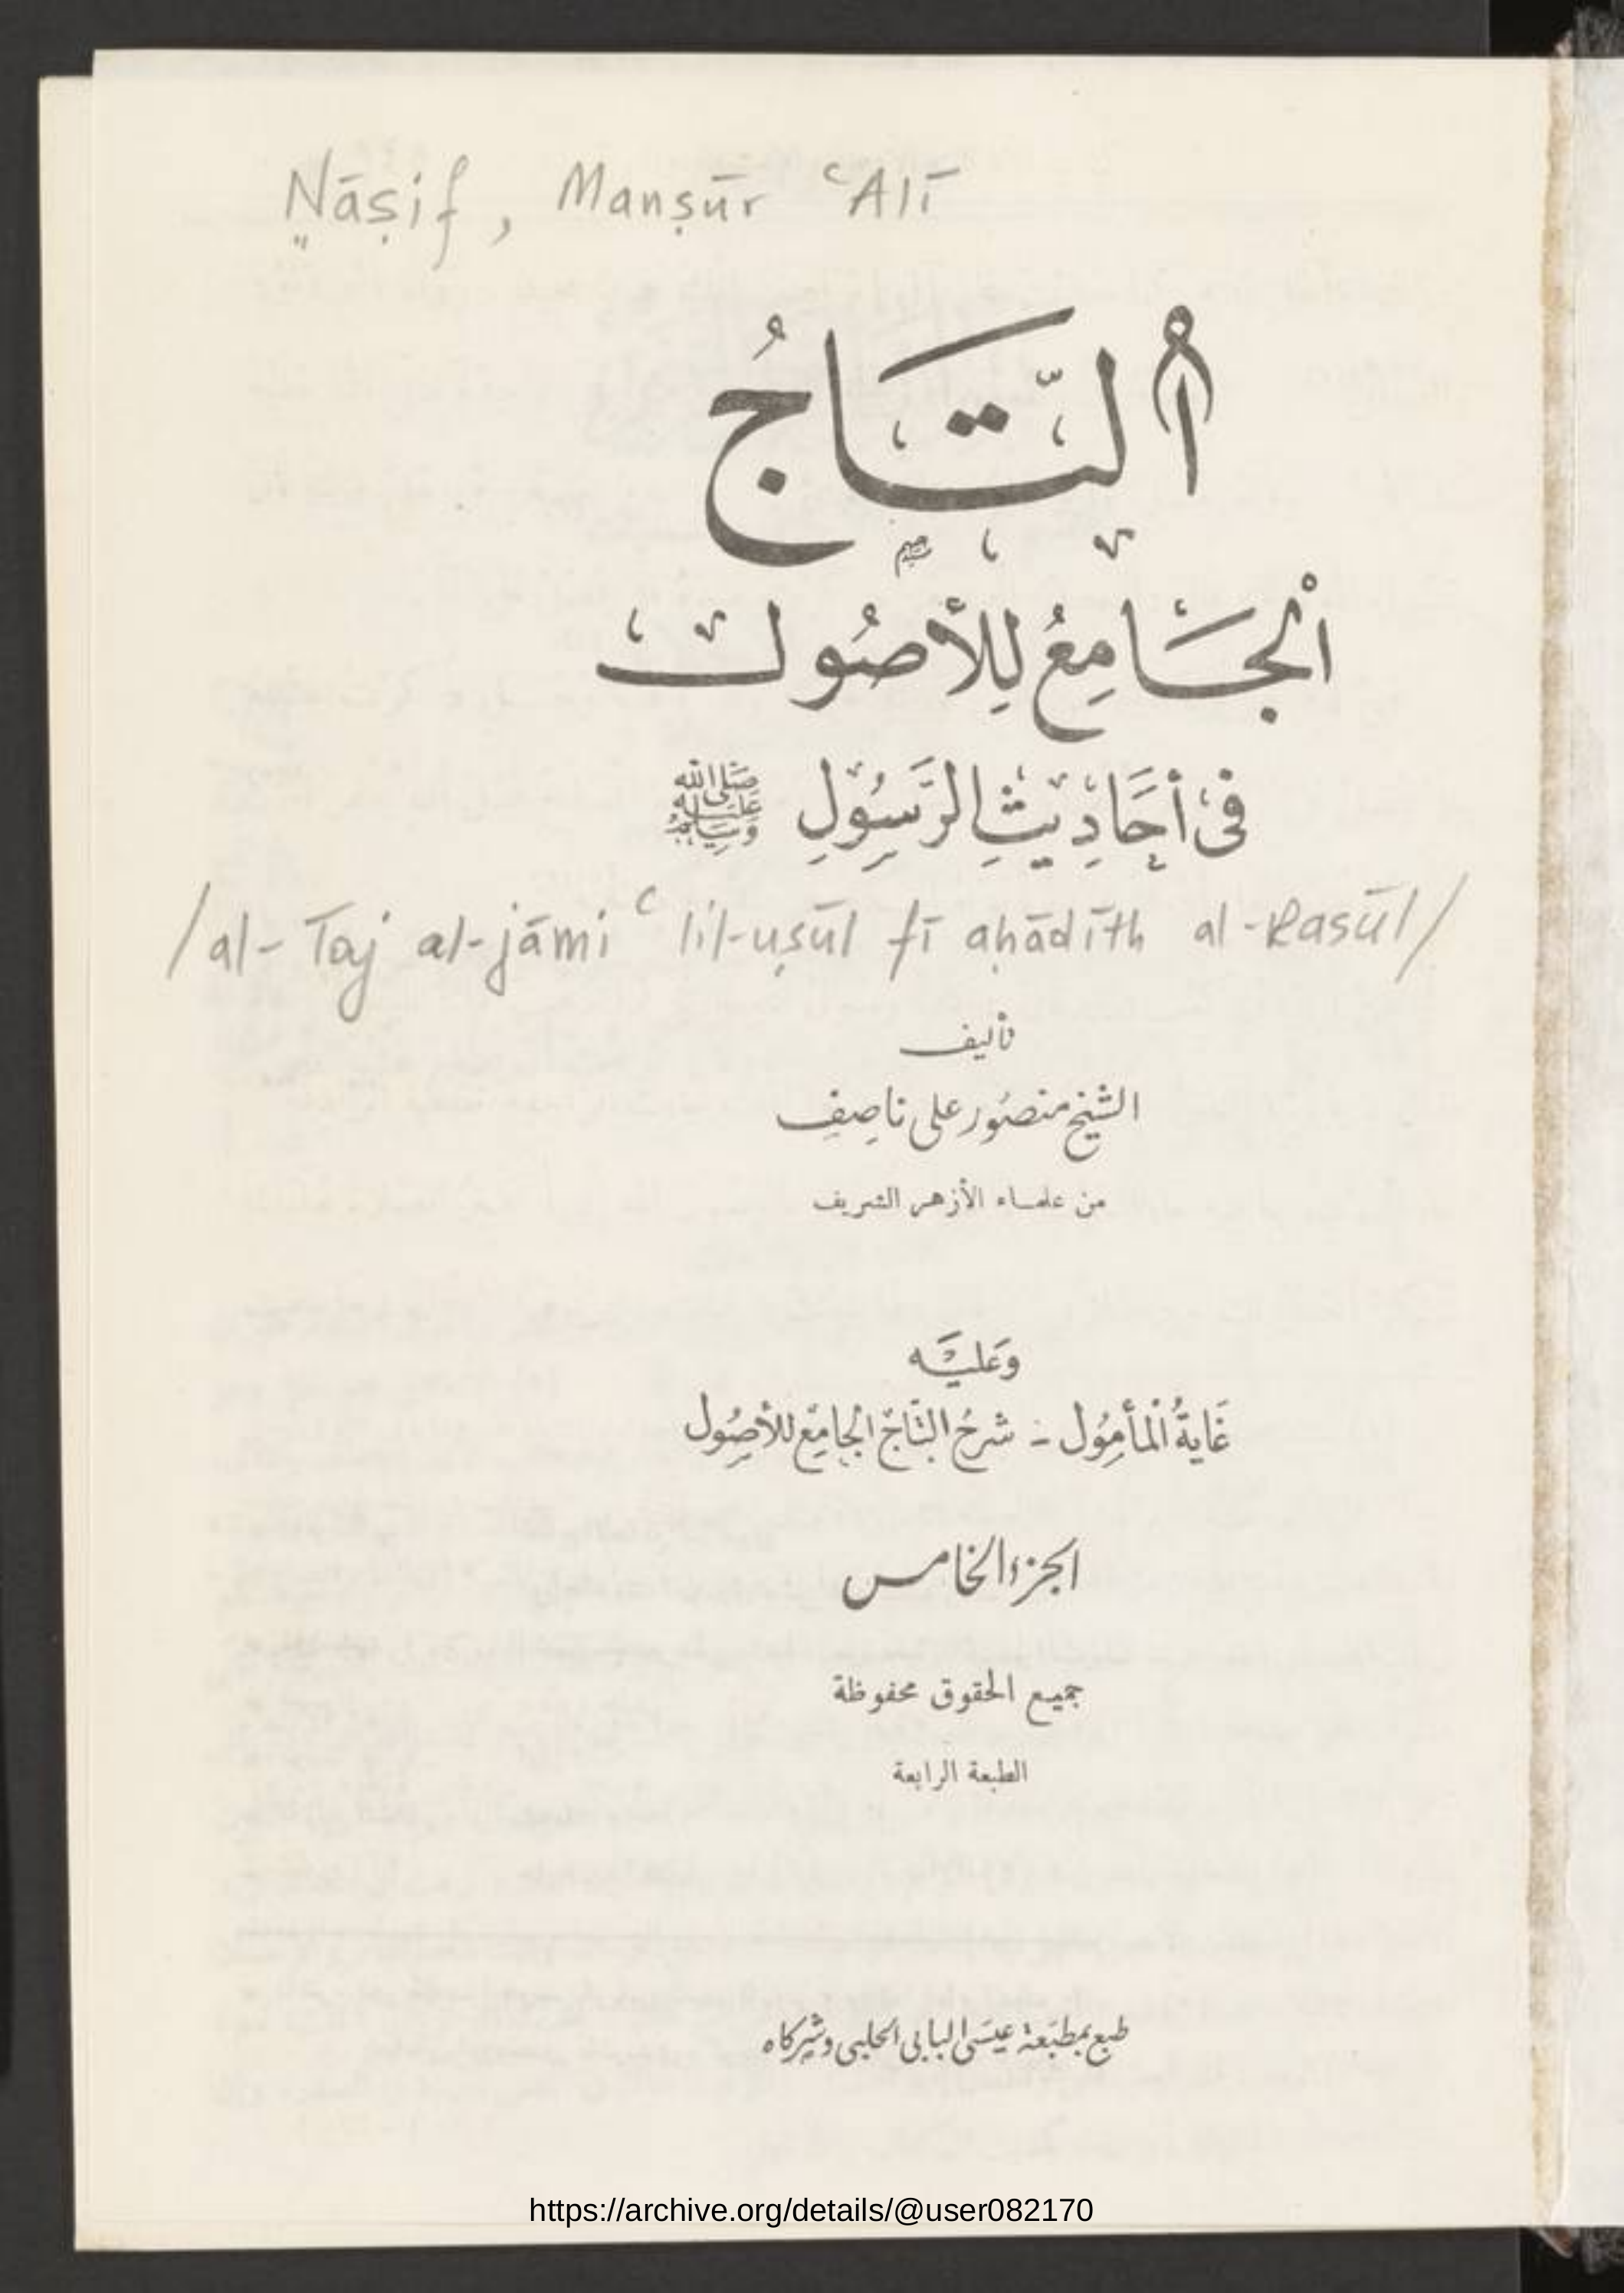 Nāṣif, Manṣūr ʿAlī
التَّاجُ
الْجَامِعُ لِلْأُصُولِ
فى أَحَادِيثِ الرَّسُولِ ﷺ
/al-Taj al-jāmiʿ lil-uṣūl fī aḥādīth al-Rasūl/
تأليف
الشيخ منصُور على ناصِف
من علماء الأزهر الشريف
وَعَليْه
غَايةُ الْمأمُول - شرحُ التَّاج الجامِع للأصُول
الجزء الخامس
جميع الحقوق محفوظة
الطبعة الرابعة
طبع بمطبَعة عيسَى البابى الحلبى وشركاه
https://archive.org/details/@user082170